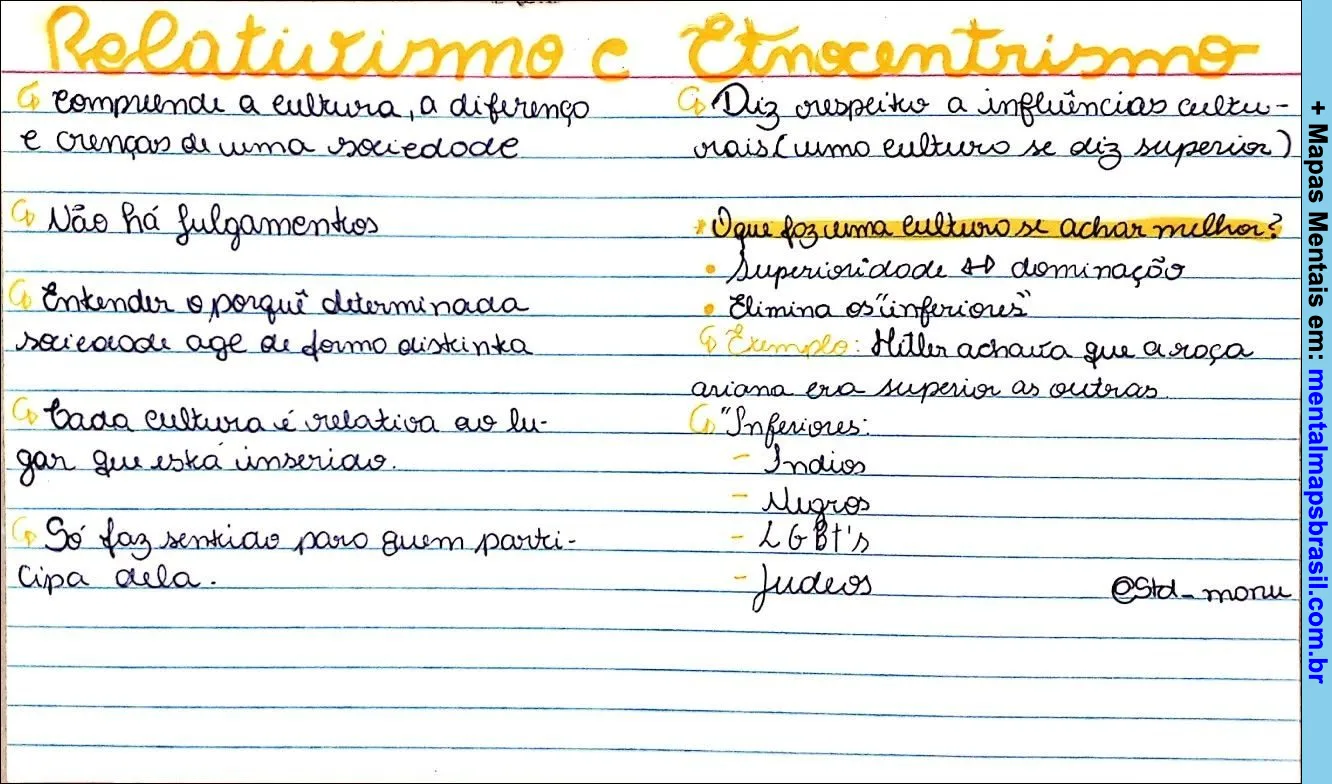 Relativismo e Etnocentrismo
Compreende a cultura, a diferença
e crenças de uma sociedade
Não há julgamentos
Entender o porquê determinada
sociedade age de forma distinta
Cada cultura é relativa ao lu-
gar que está inserido.
Só faz sentido para quem parti-
cipa dela.
Diz respeito a influências cultu-
rais (uma cultura se diz superior)
* O que faz uma cultura se achar melhor?
• Superioridade ↔ dominação
• Elimina os "inferiores"
Exemplo: Hitler achava que a raça
ariana era superior as outras
"Inferiores:
- Índios
- Negros
- LGBT's
- Judeos
@Std_manu
+ Mapas Mentais em: mentalmapsbrasil.com.br